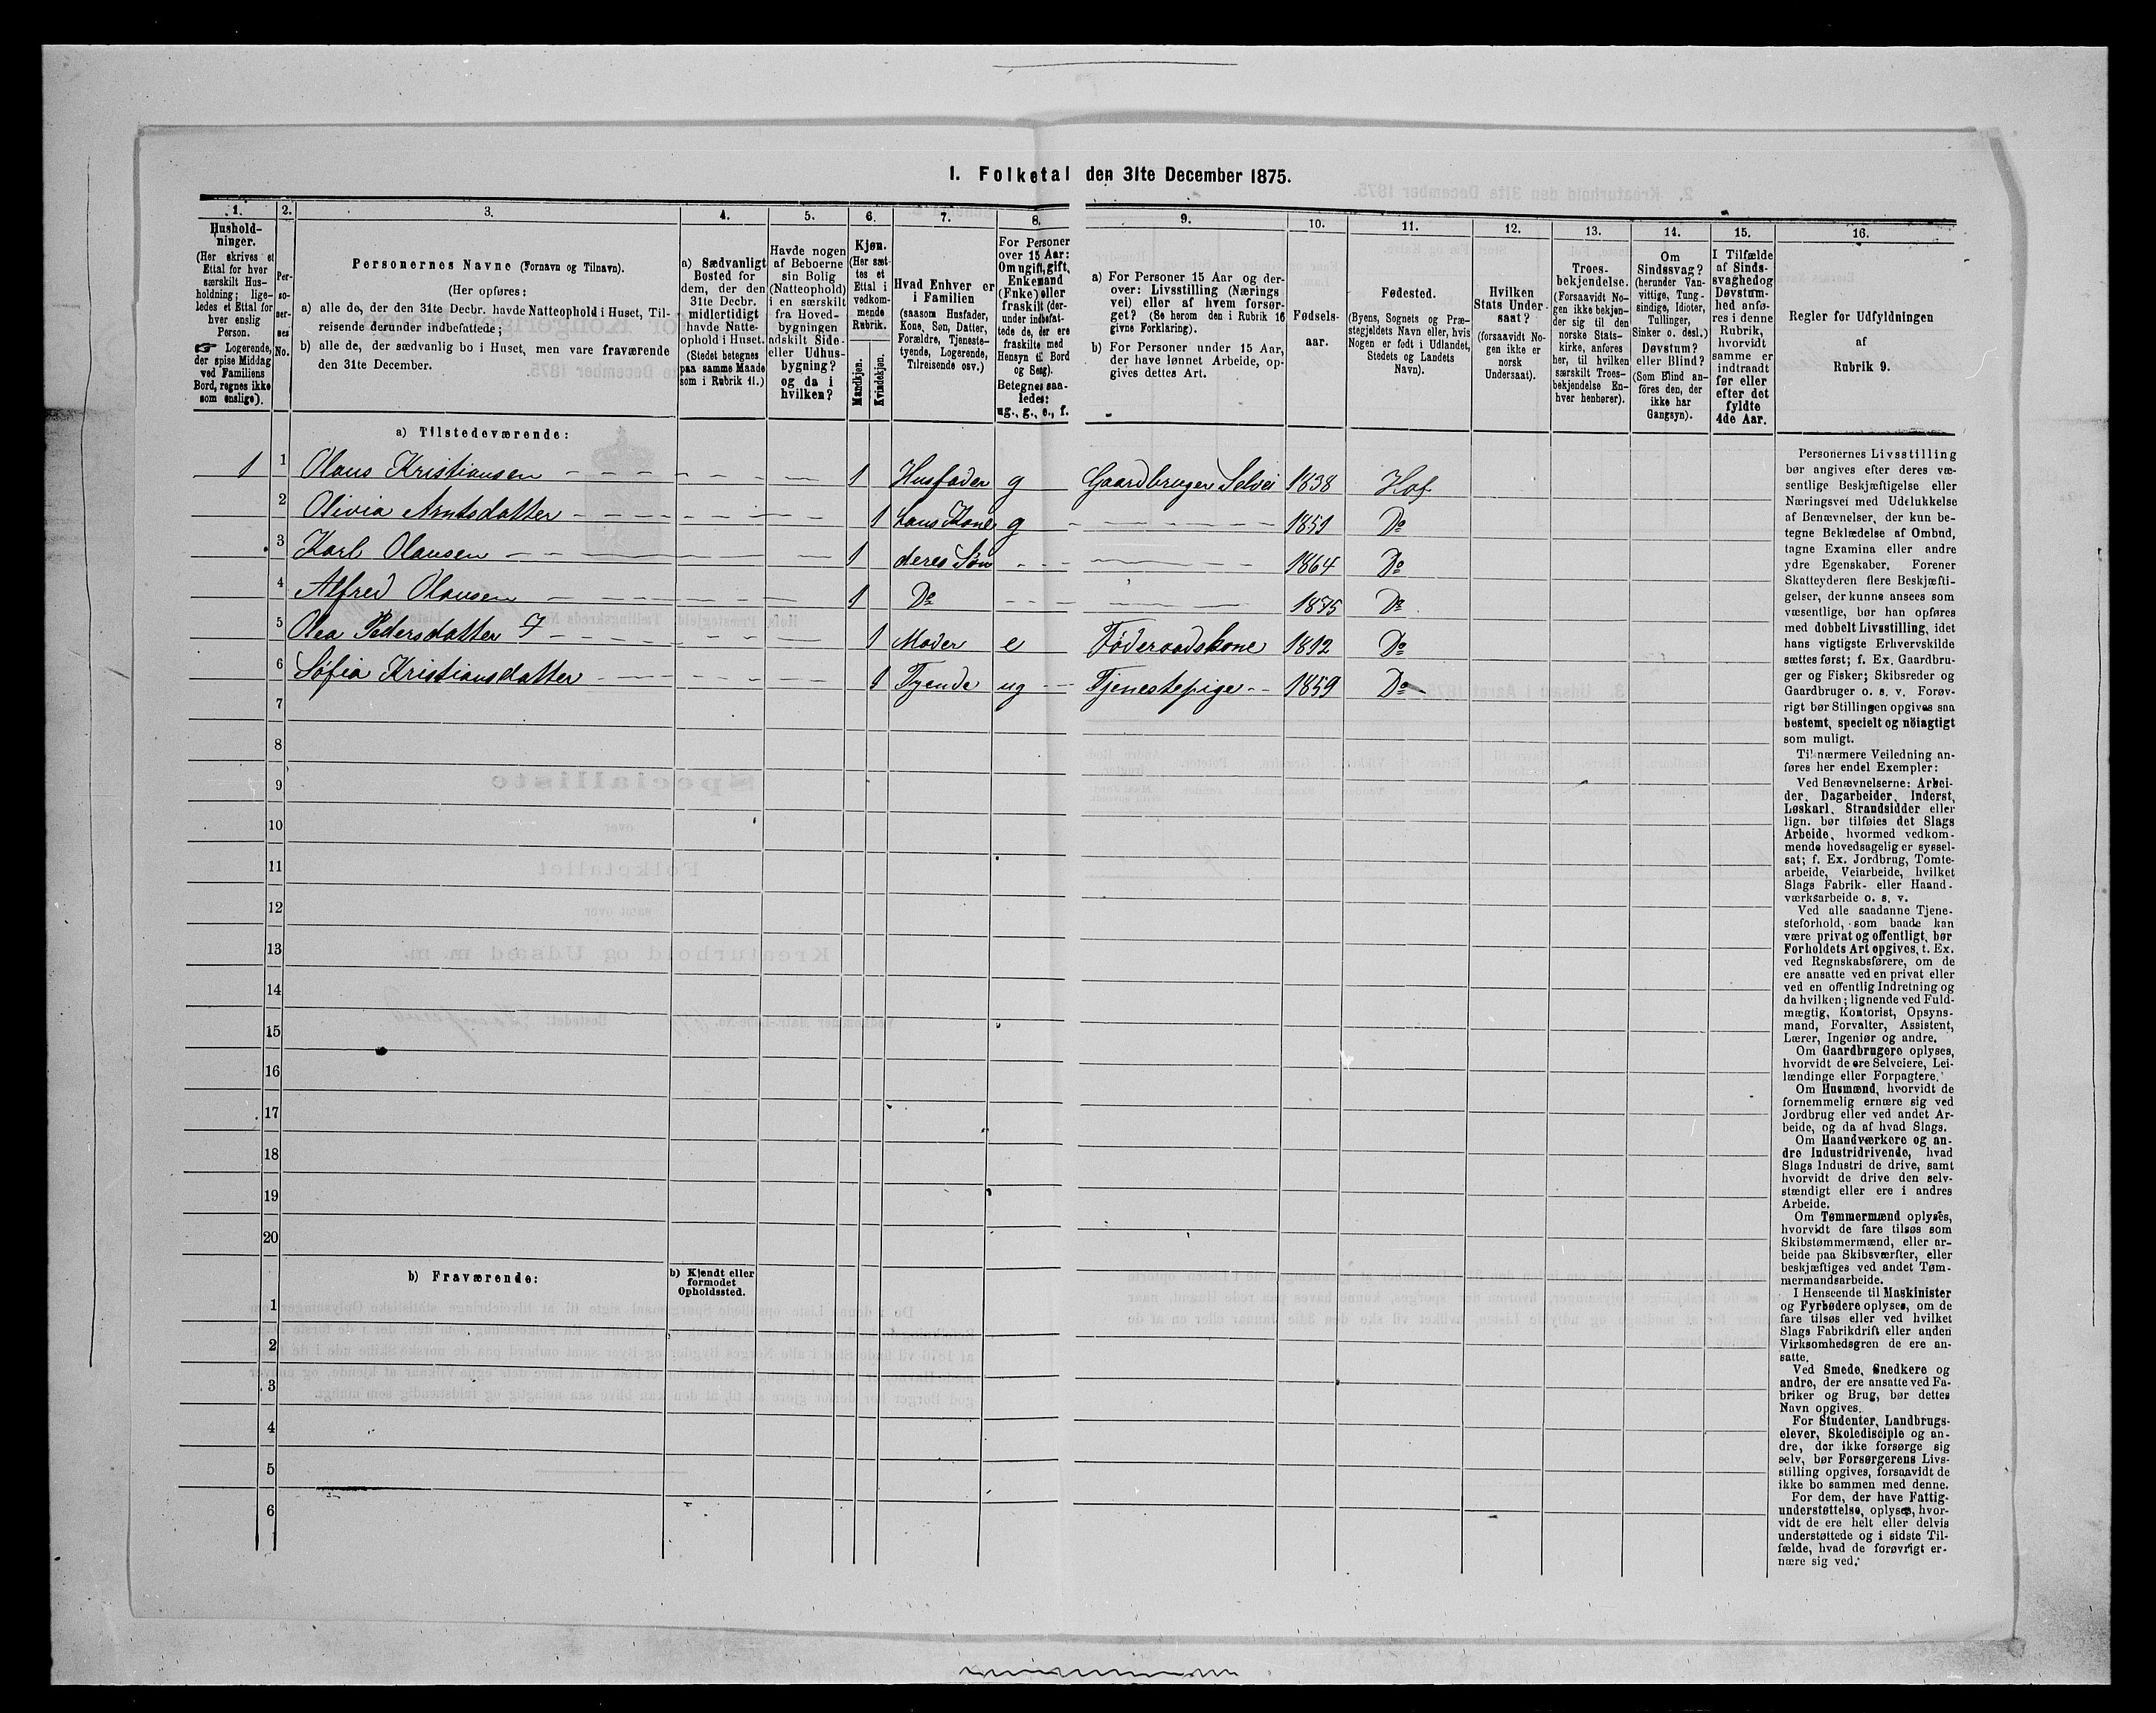 1. Folketal den 31te December 1875.
1.
Hushold-
ninger.
(Her skrives et
Ettal for hver
særskilt Hus-
holdning; lige-
ledes et Ettal for
hver enslig
Person.
Logerende,
der spise Middag
ved Familiens
Bord, regnes ikke
som enslige).
2.
Per-
so-
ner-
nes
No.
3.
Personernes Navne (Fornavn og Tilnavn).
(Her opføres:
a) alle de, der den 31te Decbr. havde Natteophold i Huset, Til-
reisende derunder indbefattede;
b) alle de, der sædvanlig bo i Huset, men vare fraværende
den 31te December.
4.
a) Sædvanligt
Bosted for
dem, der den
31te Decbr.
midlertidigt
havde Natte-
ophold i Huset.
(Stedet betegnes
paa samme Maade
som i Rubrik 11.)
5.
Havde nogen
af Beboerne
sin Bolig
(Natteophold)
i en særskilt
fra Hoved-
bygningen
adskilt Side-
eller Udhus-
bygning?
og da i
hvilken?
6.
Kjøn.
(Her sæt-
tes et
Ettal i
vedkom-
mende
Rubrik.
Mandkjøn.
Kvindekjøn.
7.
Hvad Enhver er
i Familien
(saasom Husfader,
Kone, Søn, Datter,
Forældre, Tjeneste-
tyende, Logerende,
Tilreisende osv.)
8.
For Personer
over 15 Aar:
Om ugift, gift,
Enkemand
(Enke) eller
fraskilt (der-
under indbefat-
tede de, der ere
fraskilte med
Hensyn til Bord
og Seng).
Betegnes saa-
ledes:
ug., g., e., f.
9.
a) For Personer 15 Aar og der-
over: Livsstilling (Nærings
vei) eller af hvem forsør-
get? (Se herom den i Rubrik 16
givne Forklaring).
b) For Personer under 15 Aar,
der have lønnet Arbeide, op-
gives dettes Art.
10.
Fødsels-
aar.
11.
Fødested.
(Byens, Sognets og Præ-
stegjeldets Navn eller, hvis
Nogen er født i Udlandet,
Stedets og Landets
Navn).
12.
Hvilken
Stats Under-
saat?
(forsaavidt No-
gen ikke er
norsk
Undersaat).
13.
Troes-
bekjendelse.
(Forsaavidt No-
gen ikke bekjen-
der sig til den
norske Stats-
kirke, anføres
her, til hvilken
særskilt Troes-
bekjendelse En-
hver henhører).
14.
Om
Sindssvag?
(herunder Van-
vittige, Tung-
sindige, Idioter,
Tullinger,
Sinker o. desl.)
Døvstum?
eller Blind?
(Som Blind an-
föres den, der
ikke har
Gangsyn).
15.
I Tilfælde
af Sinds-
svaghed og
Døvstum-
hed anfø-
res i denne
Rubrik,
hvorvidt
samme er
indtraadt
før eller
efter det
fyldte
4de Aar.
16.
Regler for Udfyldningen
af
Rubrik 9.
a) Tilstedeværende:
1 1 Olaus Kristiansen 1 Husfader g Gaardbruger Selvei 1838 Hof
2 Olivia Arntsdatter 1 hans Kone g 1851 Do
3 Karl Olausen 1 deres Søn 1864 Do
4 Alfred Olausen 1 Do 1875 Do
5 Olea Pedersdatter 1 Moder e Föderaadskone 1812 Do
6 Søfia Kristiansdatter 1 Tyende ug Tjenestepige 1859 Do
7
8
9
10
11
12
13
14
15
16
17
18
19
20
b) Fraværende:
b) Kjendt eller
formodet
Opholdssted.
1
2
3
4
5
6
Personernes Livsstilling
bør angives efter deres væ-
sentlige Beskjæftigelse eller
Næringsvei med Udelukkelse
af Benævnelser, der kun be-
tegne Beklædelse af Ombud,
tagne Examina eller andre
ydre Egenskaber. Forener
Skatteyderen flere Beskjæfti-
gelser, der kunne ansees som
væsentlige, bør han opføres
med dobbelt Livsstilling, idet
hans vigtigste Erhvervskilde
sættes først; f. Ex. Gaardbru-
ger og Fisker; Skibsreder og
Gaardbruger o. s. v. Forøv-
rigt bør Stillingen opgives saa
bestemt, specielt og nöiagtigt
som muligt.
Til nærmere Veiledning an-
føres her endel Exempler:
Ved Benævnelserne: Arbei-
der, Dagarbeider, Inderst,
Løskarl, Strandsidder eller
lign. bør tilføies det Slags
Arbeide, hvormed vedkom-
mende hovedsagelig er syssel-
sat; f. Ex. Jordbrug, Tomte-
arbeide, Veiarbeide, hvilket
Slags Fabrik- eller Haand-
værksarbeide o. s. v.
Ved alle saadanne Tjene-
steforhold, som baade kan
være privat og offentligt, bør
Forholdets Art opgives, t. Ex.
ved Regnskabsførere, om de
ere ansatte ved en privat eller
ved en offentlig Indretning og
da hvilken; lignende ved Fuld-
mægtig, Kontorist, Opsyns-
mand, Forvalter, Assistent,
Lærer, Ingeniør og andre.
Om Gaardbrugere oplyses,
hvorvidt de ere Selveiere, Lei-
lændinge eller Forpagtere.
Om Husmænd, hvorvidt de
fornemmelig ernære sig ved
Jordbrug eller ved andet Ar-
beide, og da af hvad Slags.
Om Haandværkere og an-
dre Industridrivende, hvad
Slags Industri de drive, samt
hvorvidt de drive den selv-
stændigt eller ere i andres
Arbeide.
Om Tømmermænd oplyses,
hvorvidt de fare tilsøs som
Skibstømmermænd, eller ar-
beide paa Skibsværfter, eller
beskjæftiges ved andet Tøm-
mermandsarbeide.
I Henseende til Maskinister
og Fyrbødere oplyses, om de
fare tilsøs eller ved hvilket
Slags Fabrikdrift eller anden
Virksomhedsgren de ere an-
satte.
Ved Smede, Snedkere og
andre, der ere ansatte ved Fa-
briker og Brug, bør dettes
Navn opgives.
For Studenter, Landbrugs-
elever, Skoledisciple og an-
dre, der ikke forsørge sig
selv, bør Forsørgerens Livs-
stilling opgives, forsaavidt de
ikke bo sammen med denne.
For dem, der have Fattig-
understøttelse, oplyses, hvor-
vidt de ere helt eller delvis
understøttede og i sidste Til-
fælde, hvad de forøvrigt er-
nære sig ved.